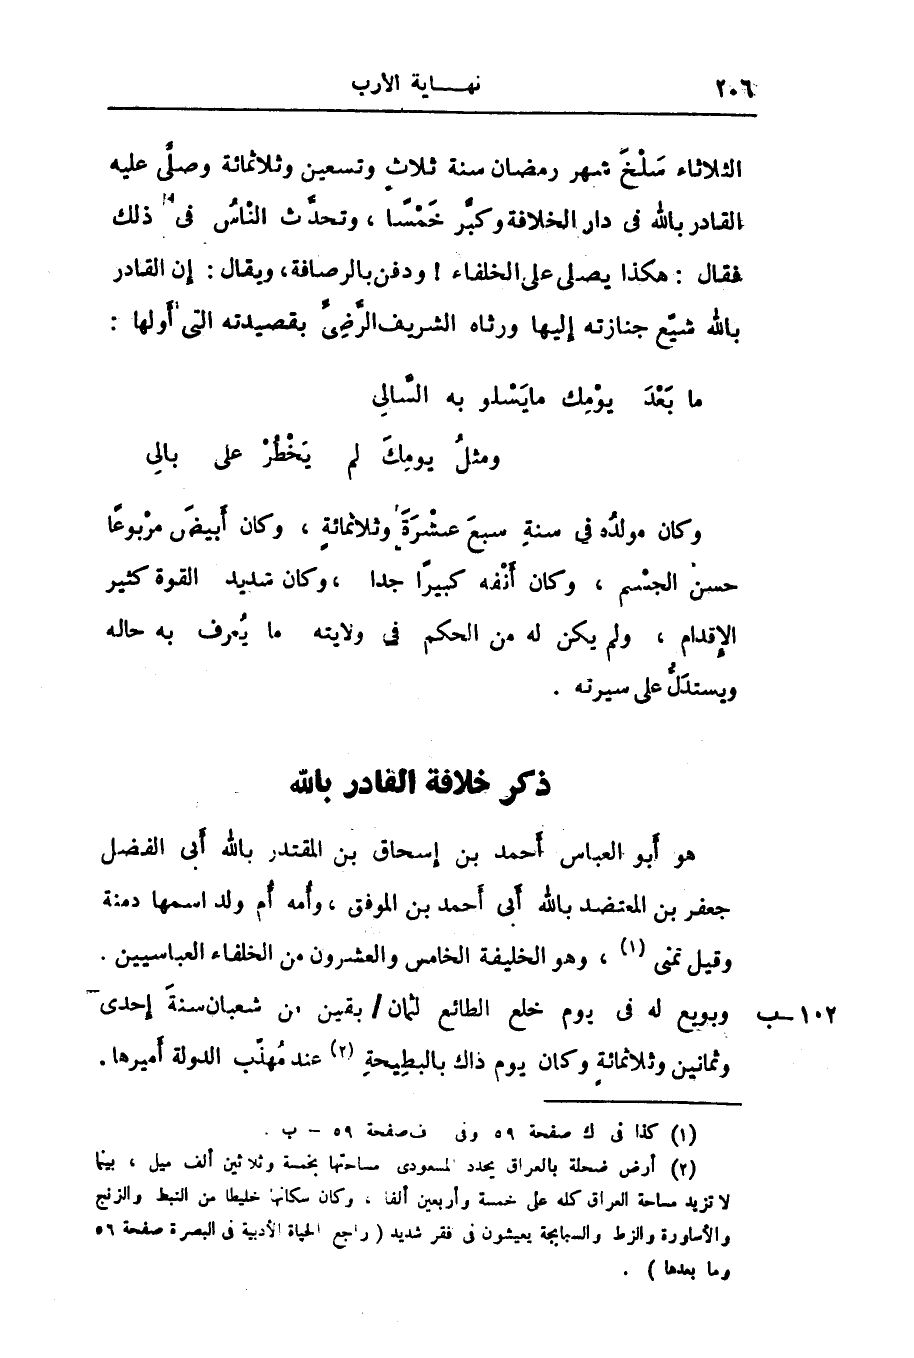 ٢٠٦ نهاية الأرب
الثلاثاء سَلْخَ شهر رمضان سنة ثلاثٍ وتسعين وثلاثمائة وصلَّى عليه
القادر بالله فى دار الخلافة وكبَّر خَمْسًا ، وتحدَّث النَّاسُ فى ذلك
فقال : هكذا يصلى على الخلفاء ! ودفن بالرصافة ، ويقال : إن القادر
بالله شيّع جنازته إليها ورثاه الشريف الرَّضِىُّ بقصيدته التى أولها :
ما بَعْدَ يوْمِك مايَسْلو به السَّالِى
ومثلُ يومِكَ لم يَخْطُرْ على بالِى
وكان مولدُه فى سنةِ سبعَ عشْرَةَ وثلاثمائةٍ ، وكان أبيضَ مرْبوعًا
حسنَ الجسْم ، وكان أَنْفه كبيرًا جدا ، وكان شديد القوة كثير
الإِقدام ، ولم يكن له من الحكم فى ولايته ما يُعرف به حاله
ويستدَلُّ على سيرته .
ذكر خلافة القادر بالله
هو أَبو العباس أَحمد بن إسحاق بن المقتدر بالله أَبى الفضل
جعفر بن المعتضد بالله أَبى أحمد بن الموفق ، وأُمه أُم ولد اسمها دمنة
وقيل تمنى (١) ، وهو الخليفة الخامس والعشرون من الخلفاء العباسيين .
١٠٢ – ب وبويع له فى يوم خلع الطائع لثمان / بقين من شعبان سنةَ إحدى
وثمانين وثلاثمائةٍ وكان يوم ذاك بالبطِيحةِ (٢) عند مُهذّب الدولة أَميرها .
(١) كذا فى ك صفحة ٥٩ وفى ف صفحة ٥٩ – ب .
(٢) أرض ضحلة بالعراق يحدد المسعودى مساحتها بخمسة وثلاثين ألف ميل ، بينما
لا تزيد مساحة العراق كله على خمسة وأربعين ألفا ، وكان سكانها خليطا من النبط والزنج
والأساورة والزط والسبابجة يعيشون فى فقر شديد ( راجع الحياة الأدبية فى البصرة صفحة ٥٦
وما بعدها ) .